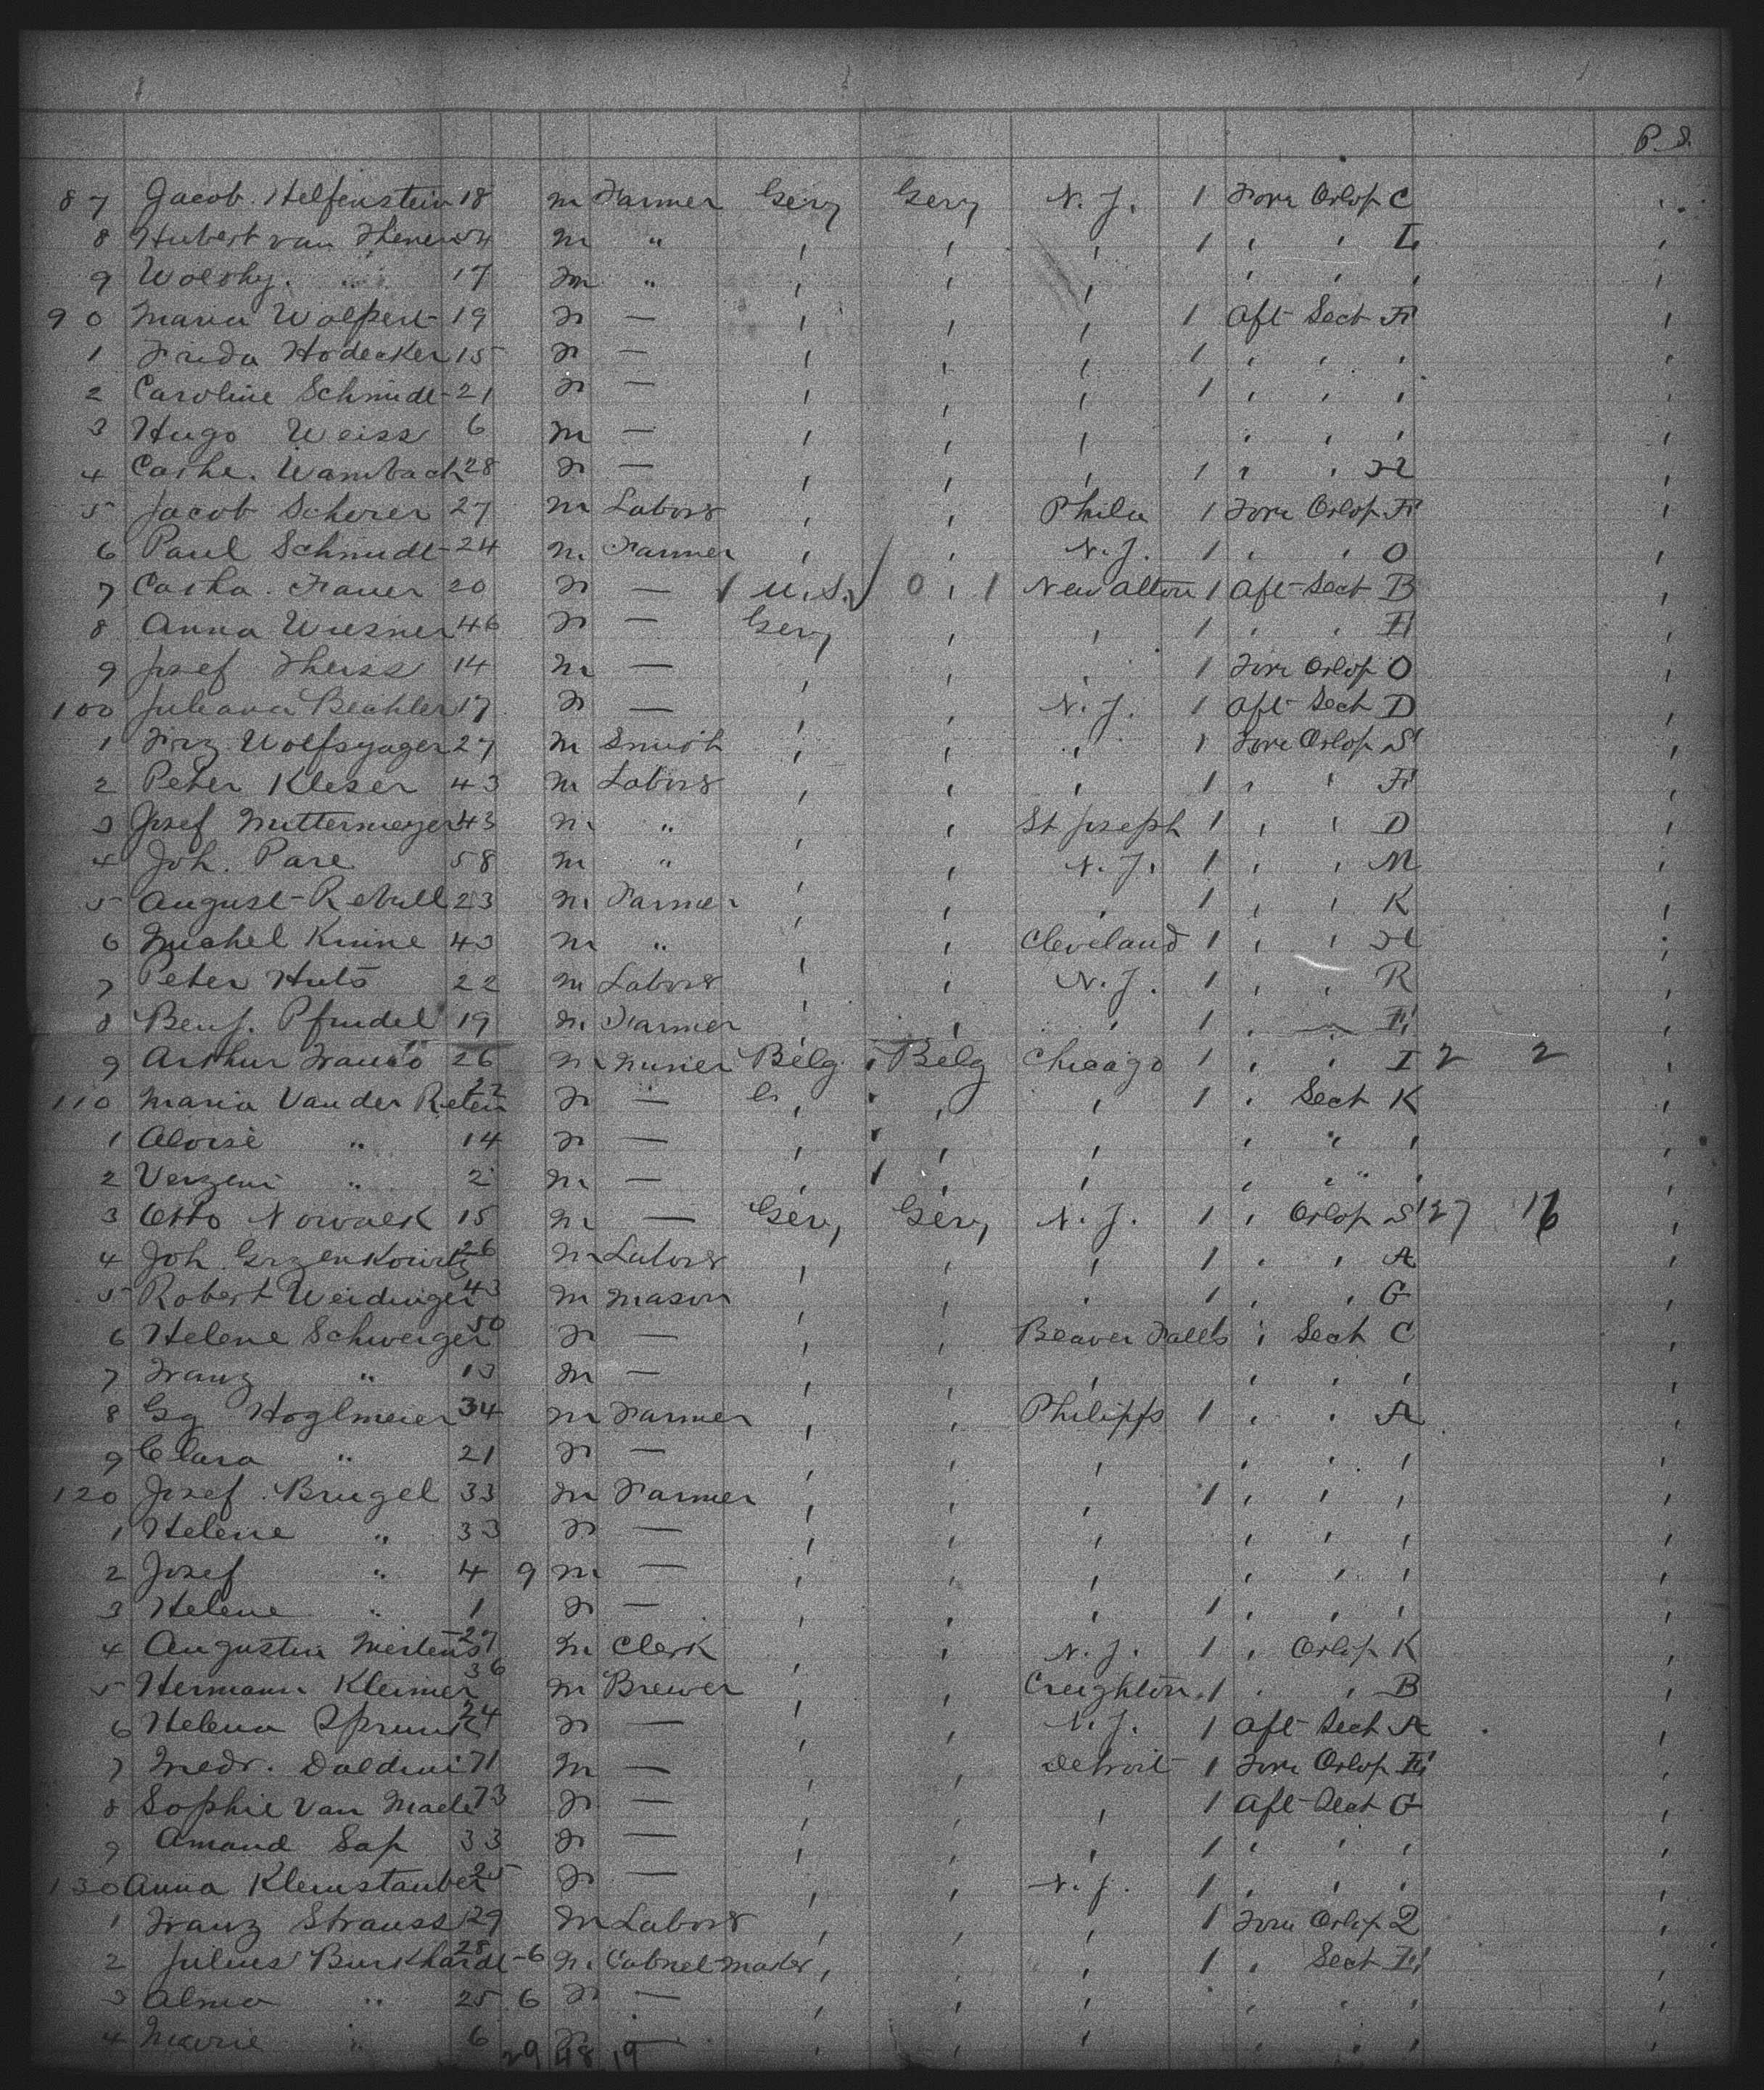 P. S.
87 Jacob Helfenstein 18 m Farmer Gery Gery N. J. 1 Fore Orlop C
8 Hubert van Theven 54 m " , , , 1 , , L
9 17 m " , , , , , ,
90 Maria Wolpert 19 n — , , , 1 Aft Sect F
1 Frida Hodecker 15 n — , , , 1 , , ,
2 Caroline Schmidt 21 n — , , , 1 , , ,
3 Hugo Weiss 6 m — , , , , , ,
4 Cathe. Wambach 28 n — , , , 1 , , H
5 Jacob Scherer 27 m Labors , , Phila 1 Fore Orlop F
6 Paul Schmidt 24 m Farmer , , N. J. 1 , , O
7 Catha. Frauer 20 n — 1 U.S. 0 , 1 New Alton 1 Aft Sect B
8 Anna Wiesner 46 n — Gery , , 1 , , F
9 Josef Theiss 14 m — , , , 1 Fore Orlop O
100 Juliana Beahler 17 n — , , N. J. 1 Aft Sect D
1 Frz. Wolfsyager 27 m Smith , , , 1 Fore Orlop S
2 Peter Kleser 43 m Labors , , , 1 , , F
3 Josef Mittermeyer 43 m " , , St Joseph 1 , , D
4 Joh. Pare 58 m " , , N. J. 1 , , M
5 August 23 m Farmer , , , 1 , , K
6 Michel Knine 43 m " , , Cleveland 1 , , H
7 Peter Huts 22 m Labors , , N. J. 1 , , R
8 Benj. Pfindel 19 m Farmer , , , 1 , , E
9 Arthur 26 m Miner Belg , Belg Chicago 1 , , I 2 2
110 Maria Vander Reten 22 n — , , , 1 , Sect K
1 Aloise " 14 n — , , , , " ,
2 " 2 m — , 1 , , , " ,
3 Otto Nowack 15 m — Gery Gery N. J. 1 , Orlop S 27 16
4 Joh. Grzenkowitz 26 m Labors , , , 1 , , A
5 Robert Weidinger 43 m Mason , , , 1 , , G
6 Helene Schweiger 50 n — , , Beaver Falls , Sect C
7 Franz " 13 m — , , , , , ,
8 Gg Hoglmeier 34 m Farmer , , Philipps 1 , , A
9 Clara " 21 n — , , , , , ,
120 Josef Brugel 33 m Farmer , , , 1 , , ,
1 Helene " 33 n — , , , , , ,
2 Josef " 4 9 m — , , , , , ,
3 Helene " 1 n — , , , 1 , , ,
4 Augustin Mertens 27 m Clerk , , N. J. 1 , Orlop K
5 Hermann Kleimer 36 m Brewer , , Creighton 1 , , B
6 Helena Sprunk 24 n — , , N. J. 1 Aft Sect A
7 Medr. Daldini 71 m — , , Detroit 1 Fore Orlop E
8 Sophie Van Maele 73 n — , , , 1 Aft Sect G
9 Amand Sap 33 n — , , , 1 , , ,
130 Anna Kleinstauber 25 n — , , N. J. 1 , , ,
1 Franz Strauss 29 m Labors , , , 1 Fore Orlop Q
2 Julius Burkhardt 28 6 m Cabnet-maker , , , 1 , Sect E
3 Alma " 25 6 n — , , , , , ,
4 Marie " 6 n — , , , , , ,
29 48 19